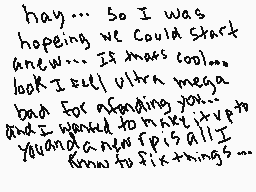 hay... so I was
hopeing we could start
anew... If thats cool...
look I feel ultra mega
bad for afanding you...
and I wanted to make it up to
you and a new rp is all I
know to fix things...